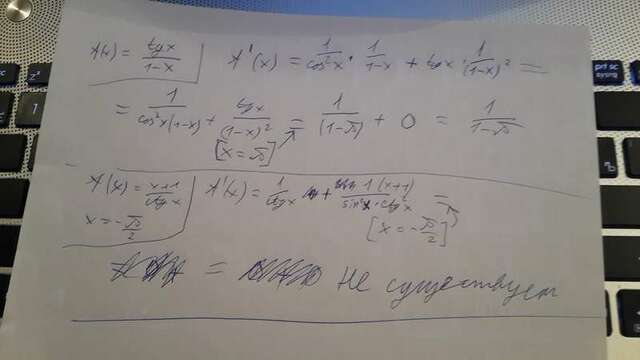 f(x) = tgx / 1-x | f'(x) = 1/cos²x · 1/1-x + tgx · 1/(1-x)² =
= 1/cos²x(1-x) + tgx/(1-x)² = 1/(1-π) + 0 = 1/1-π
[x = π]
f(x) = x+1/ctgx | f'(x) = 1/ctgx + 1(x+1)/sin²x·ctg²x =
x = -π/2 [x = -π/2]
= не существует